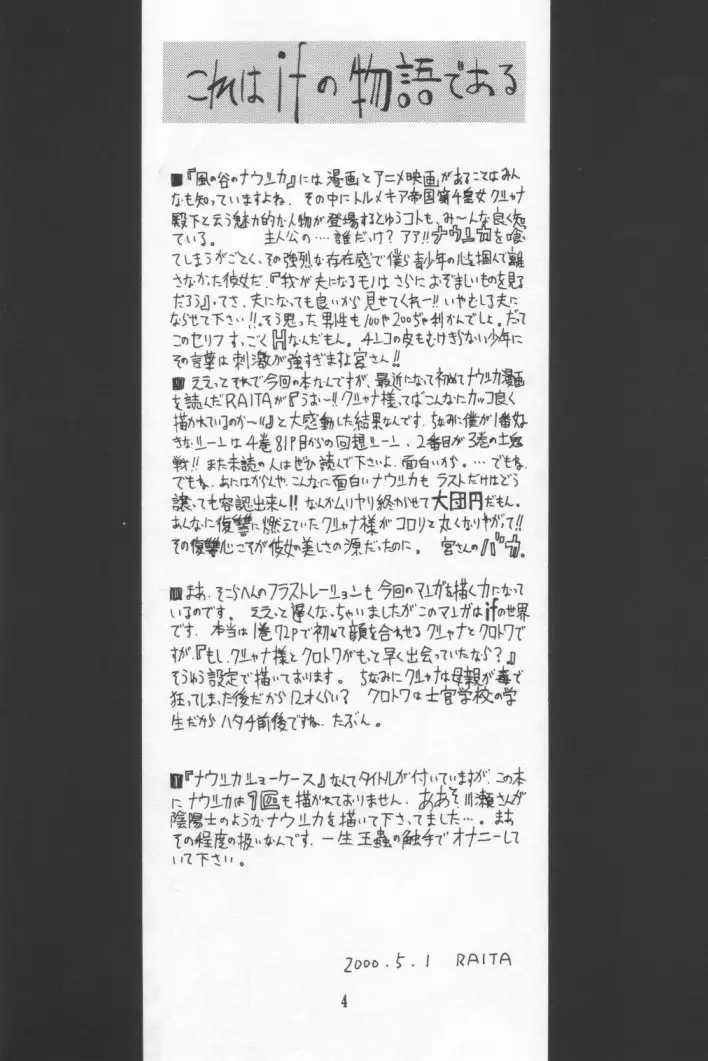 これはifの物語である
■『風の谷のナウシカ』には漫画とアニメ映画があることはみん
なも知っていますよね。その中にトルメキア帝国第4皇女クシャナ
殿下と云う魅力的な人物が登場するとゆうコトも、み〜んな良く知
ている。 主人公の…誰だっけ?アア!!ナウシカを喰
ってしまうがごとく、その強烈な存在感で僕ら青少年の心を掴んで離
さなかった彼女だ。『我が夫になるモノはさらにおぞましいものを見る
だろう』ってさ、夫になっても良いから見せてくれー!!いやむしろ夫に
ならせて下さい!!。そう思った男性も100や200ぢゃ利かんでしょ。だって
このセリフすっごくHなんだもん。チ○コの皮もむけきらない少年に
その言葉は刺激が強すぎますよ宮さん!!
■ええっとそれで今回の本なんですが、最近になって初めてナウシカ漫画
を読んだRAITAが『うお〜!!クシャナ様ってばこんなにカッコ良く
描かれているのか〜!!』と大感動した結果なんです。ちなみに僕が1番好
きなシーンは4巻81P目からの回想シーン、2番目が3巻の土鬼
戦!!また未読の人はぜひ読んで下さいよ、面白いから。…でもね、
でもね、あたはがんや、こんなに面白いナウシカもラストだけはどう
譲っても容認出来ん!!なんかムリヤリ終わらせて大団円だもん。
あんなに復讐に燃えていたクシャナ様がコロリと丸くなりやがって!!
その復讐心こそが彼女の美しさの源だったのに。 宮さんのバカ。
■まあ、そこらへんのフラストレーションも今回のマンガを描く力になって
いるのです。ええっと遅くなっちゃいましたがこのマンガはifの世界
です。本当は1巻72Pで初めて顔を合わせるクシャナとクロトワで
すが、『もし、クシャナ様とクロトワがもっと早く出会っていたなら?』
そうゆう設定で描いております。ちなみにクシャナは母親が毒で
狂ってしまった後だから12才くらい? クロトワは士官学校の学
生だからハタチ前後ですね、たぶん。
■『ナウシカショーケース』なんてタイトルが付いていますが、この本
にナウシカは1回も描かれておりません。ああそ川瀬さんが
陰陽士のようなナウシカを描いて下さってました…。まあ
その程度の扱いなんです、一生王蟲の触手でオナニーして
いて下さい。
2000.5.1 RAITA
4